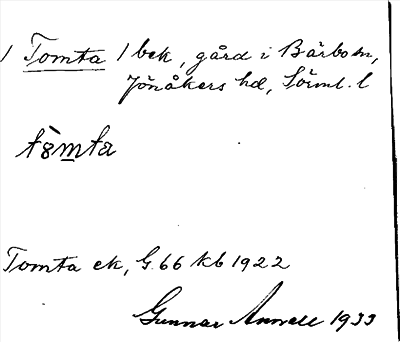 1 Tomta 1 bek, gård i Bärbo sn,
Jönåkers hd, Sörml. l
tȍmta
Tomta ek, G. 66 kb 1922
Gunnar 1933